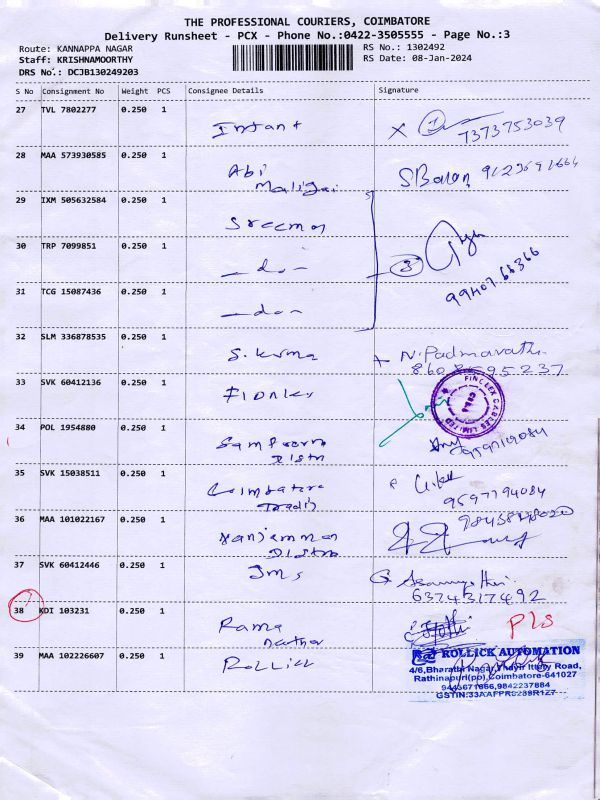 THE PROFESSIONAL COURIERS, COIMBATORE
Delivery Runsheet - PCX - Phone No.:0422-3505555 - Page No.:3
Route: KANNAPPA NAGAR
Staff: KRISHNAMOORTHY
DRS No.: DCJB130249203
RS No.: 1302492
RS Date: 08-Jan-2024
S No Consignment No Weight PCS Consignee Details Signature
27 TVL 7802277 0.250 1
Infant X 1
7373753039
28 MAA 573930585 0.250 1
Abi
Maligai SBalan
29 IXM 505632584 0.250 1
Sreemon
30 TRP 7099851 0.250 1
- do - 3
99407 66366
31 TCG 15087436 0.250 1
- do -
32 SLM 336878535 0.250 1
S. kuma N. Padmavathi
8608595237
33 SVK 60412136 0.250 1
FINOLEX CABLES LIMITED
34 POL 1954880 0.250 1
Distri
35 SVK 15038511 0.250 1
Coimbatore
Tradi 9597794084
36 MAA 101022167 0.250 1
Distri
37 SVK 60412446 0.250 1
Jms
6374317492
38 KDI 103231 0.250 1
Rama Pls
39 MAA 102226607 0.250 1
Rollick ROLLICK AUTOMATION
4/6,Bharathi Nagar, Road,
Rathinapuri(po),Coimbatore-641027
9443671666,9842237884